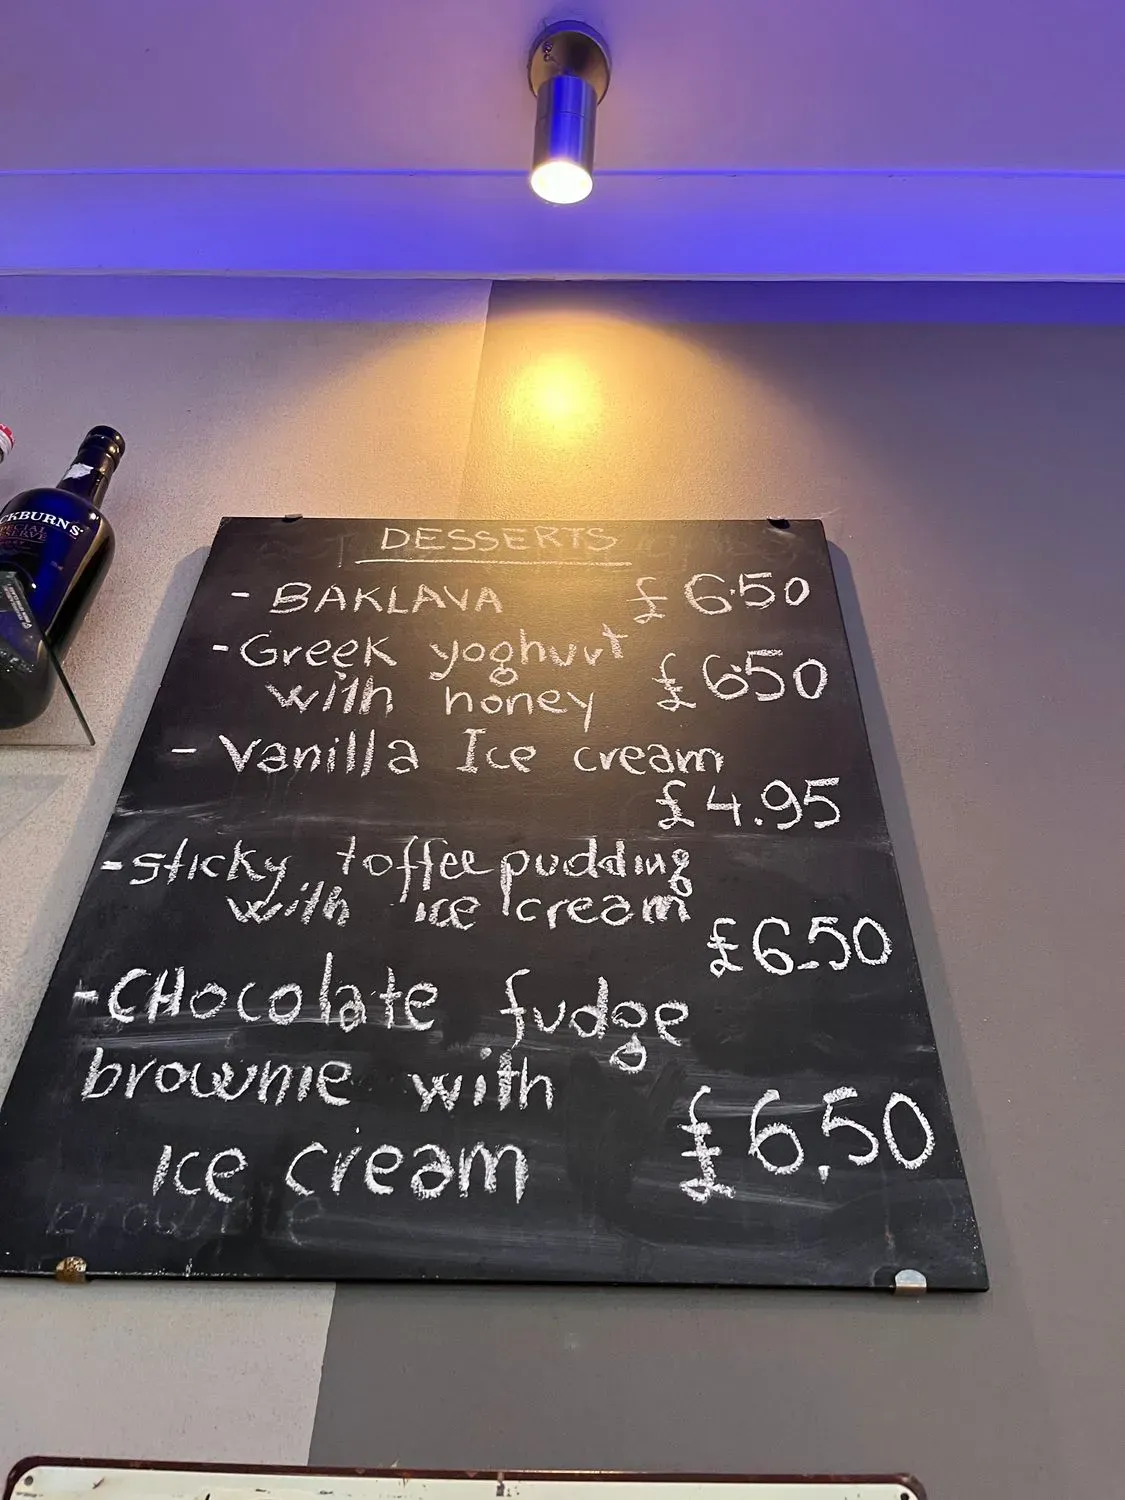 DESSERTS
- BAKLAVA £6.50
- Greek yoghurt
with honey £6.50
- Vanilla Ice cream
£4.95
- sticky toffee pudding
with ice cream
£6.50
- CHocolate fudge
brownie with
ice cream £6.50
brownie
CKBURN'S
SPECIAL
RESERVE